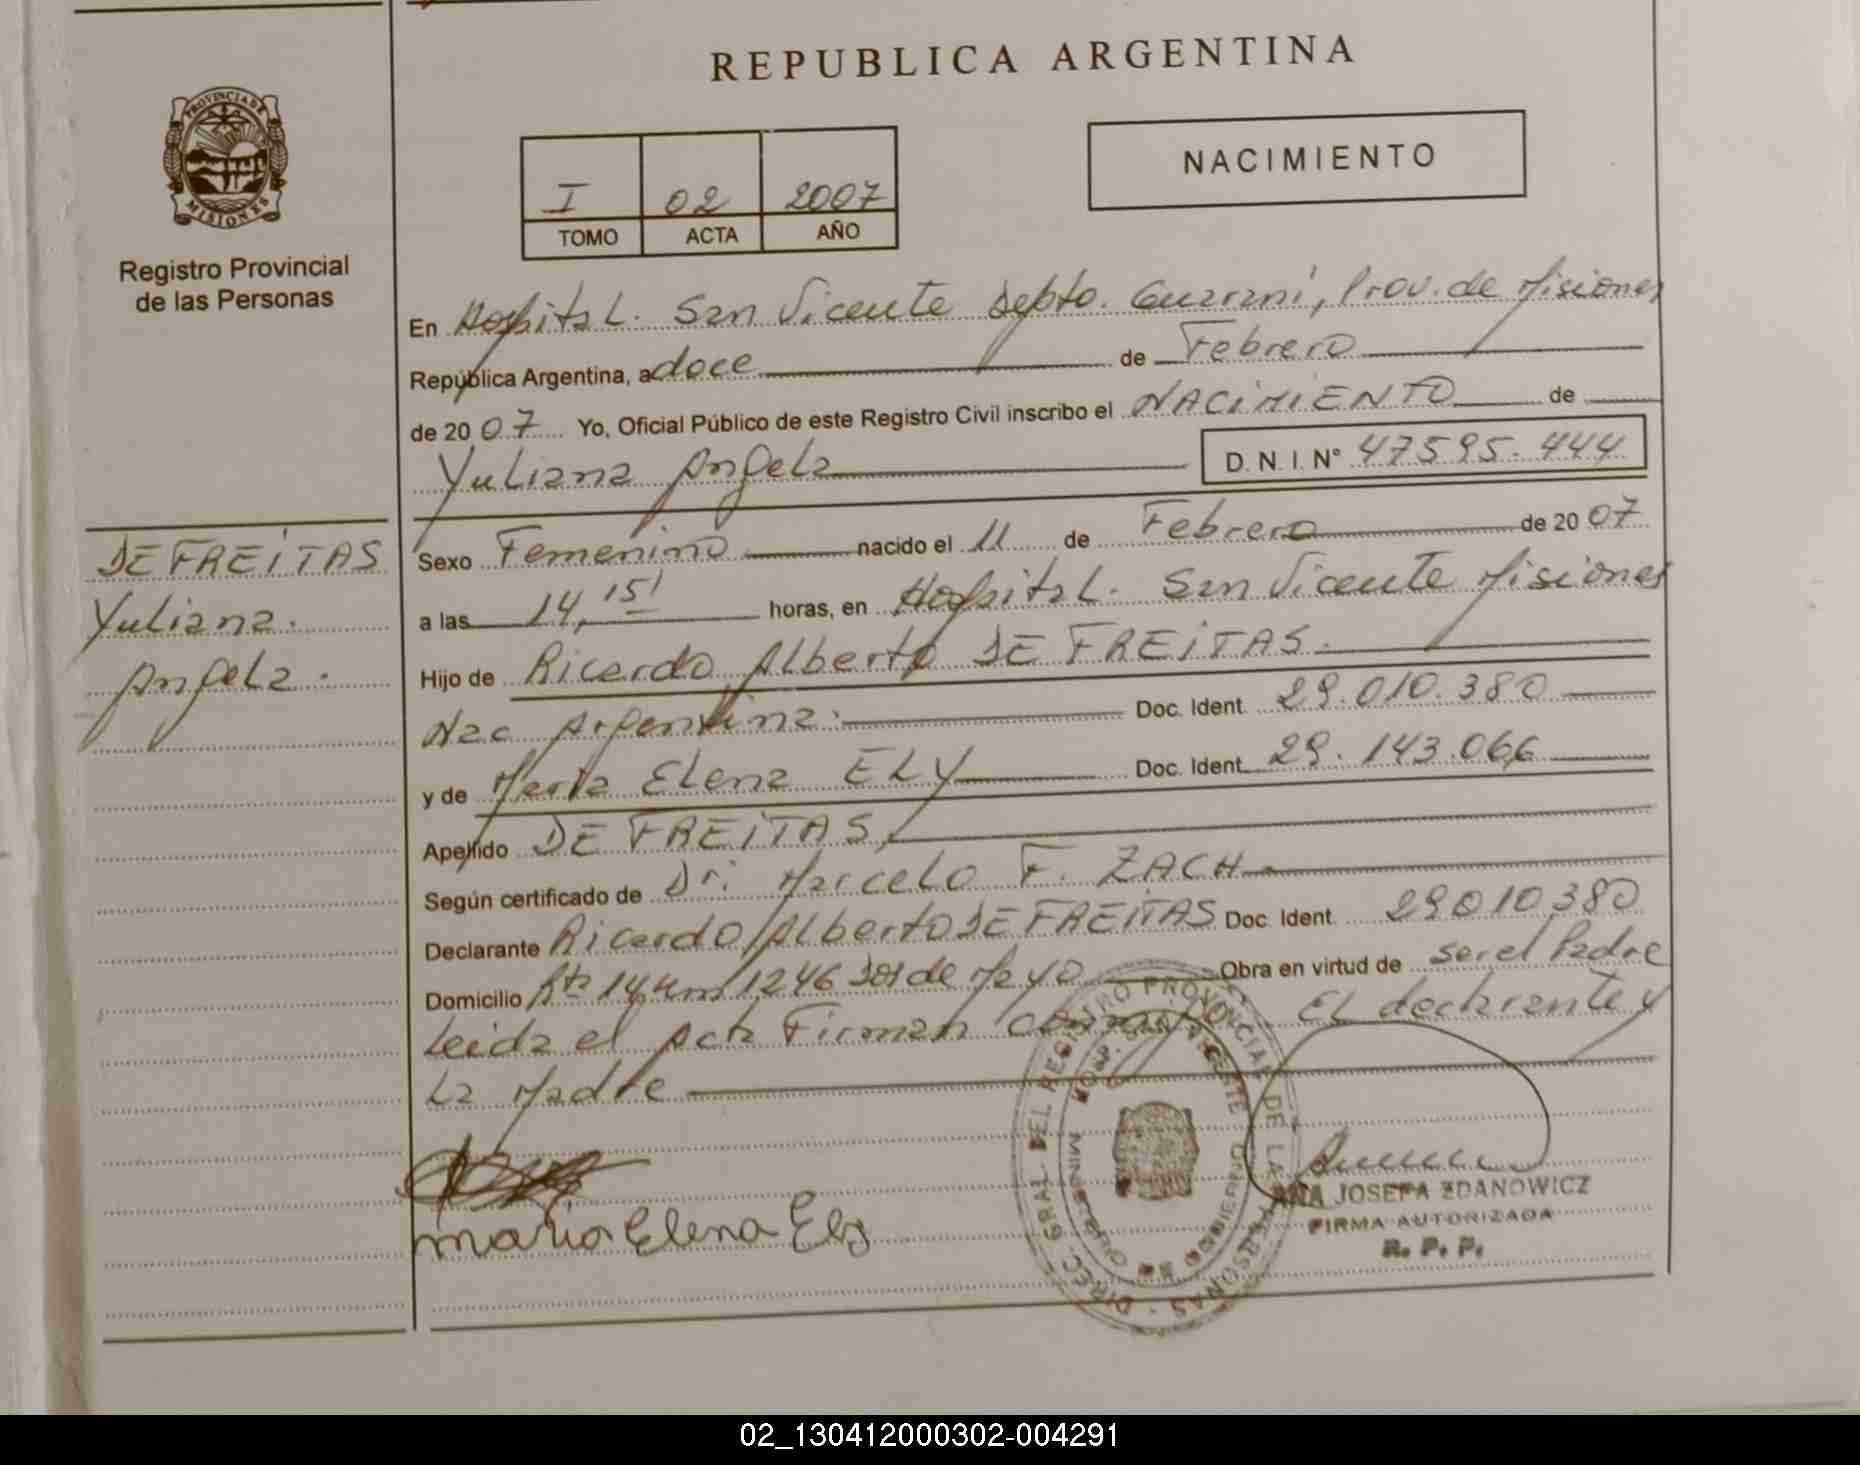 REPUBLICA ARGENTINA
PROVINCIA DE MISIONES
Registro Provincial
de las Personas
I 02 2007
TOMO ACTA AÑO
NACIMIENTO
En Hospital. San Vicente Depto. Guarani, Prov. de Misiones
República Argentina, a doce de Febrero
de 2007 Yo, Oficial Público de este Registro Civil inscribo el NACIMIENTO de
Yuliana Angela D. N. I. N° 47595.444
DE FREITAS
Yuliana.
Angela.
Sexo Femenino nacido el 11 de Febrero de 2007
a las 14,15' horas, en Hospital. San Vicente Misiones
Hijo de Ricardo Alberto DE FREITAS.
Nac Argentina. Doc. Ident. 29.010.380
y de Maria Elena ELY Doc. Ident. 29.143.066
Apellido DE FREITAS,
Según certificado de Dr. Marcelo F. ZACH
Declarante Ricardo Alberto DE FREITAS Doc. Ident. 29010380
Domicilio Rta 14 km 1246 Dos de Mayo Obra en virtud de ser el Padre
Leida el Acta Firman conmigo El declarante y
La Madre
Maria Elena Ely
DIREC. GRAL. DEL REGISTRO PROVINCIAL DE LAS PERSONAS
HOSP. SAN VICENTE
ANA JOSEFA ZDANOWICZ
FIRMA AUTORIZADA
R. P. P.
02_130412000302-004291